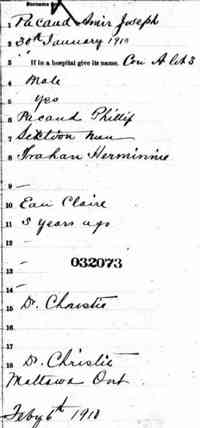 Surname
1 Pacaud Amir Joseph
2 30th January 1910
3 If in a hospital give its name. Con A Lot 3
4 Male
5 Yes
6 Pacaud Phillip
7 Sektion man
8 Trahan Herminnie
9 —
10 Eau Claire
11 3 years ago
12 —
13 032073
14 —
15 Dr. Christie
16
17
18 Dr. Christie
Mattawa Ont.
Feby 6th 1910